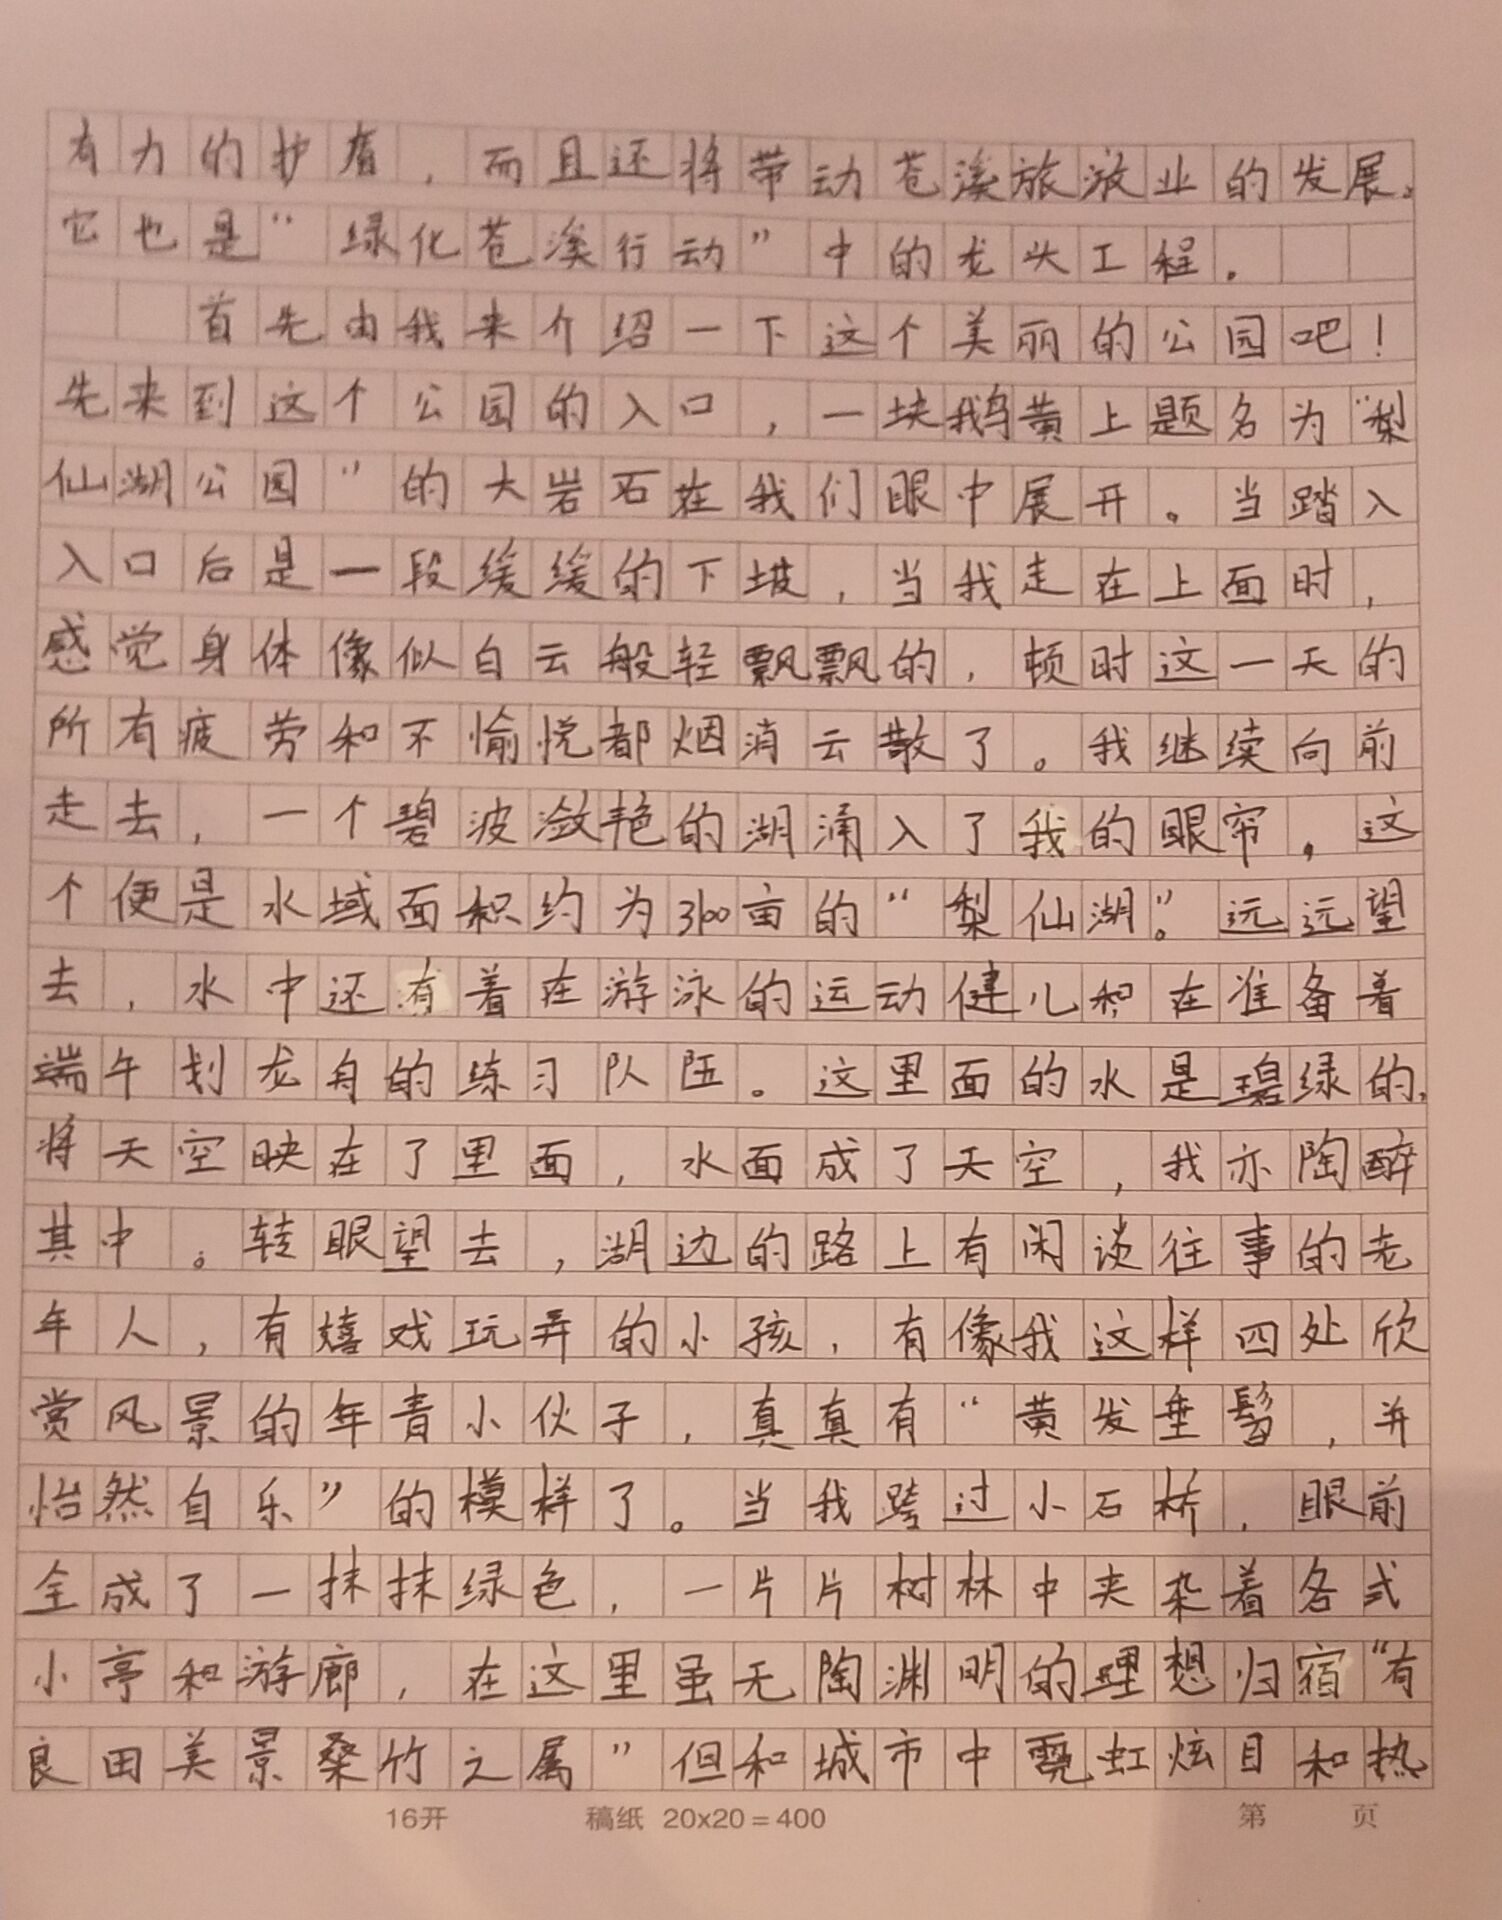 有力的护盾，而且还将带动苍溪旅游业的发展。
它也是“绿化苍溪行动”中的龙头工程。
首先由我来介绍一下这个美丽的公园吧！
先来到这个公园的入口，一块鹅黄上题名为“梨
仙湖公园”的大岩石在我们眼中展开。当踏入
入口后是一段缓缓的下坡，当我走在上面时，
感觉身体像似白云般轻飘飘的，顿时这一天的
所有疲劳和不愉悦都烟消云散了。我继续向前
走去，一个碧波潋艳的湖涌入了我的眼帘，这
个便是水域面积约为300亩的“梨仙湖”。远远望
去，水中还有着在游泳的运动健儿和在准备着
端午划龙舟的练习队伍。这里面的水是碧绿的，
将天空映在了里面，水面成了天空，我亦陶醉
其中。转眼望去，湖边的路上有闲谈往事的老
年人，有嬉戏玩弄的小孩，有像我这样四处欣
赏风景的年青小伙子，真真有“黄发垂髫，并
怡然自乐”的模样了。当我跨过小石桥，眼前
全成了一抹抹绿色，一片片树林中夹杂着各式
小亭和游廊，在这里虽无陶渊明的理想归宿“有
良田美景桑竹之属”但和城市中霓虹炫目和热
16开 稿纸 20x20=400 第 页